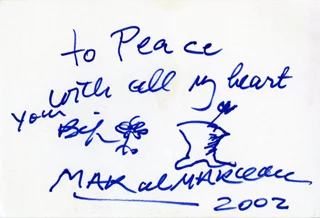 to Peace
with all my heart
Your
Bip
MARcel MARceau
2002